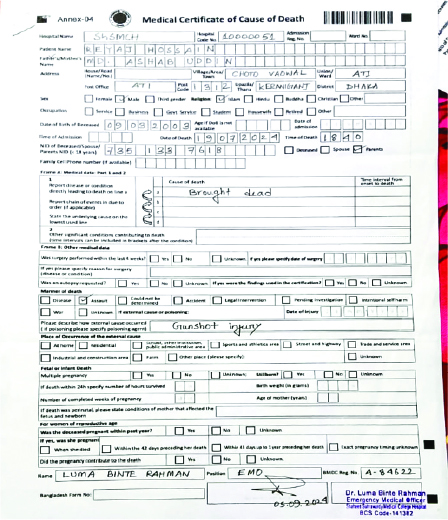 Annex-04 Medical Certificate of Cause of Death
Hospital Name SHSMCH Hospital Code No. 10000051 Admission Reg. No Ward No
Patient Name REYAJ HOSSAIN
Father's/Mother's Name MD. ASHAB UDDIN
Address House/Road (Name/No.) Village/Area/Town CHOTO VAOWAL Union/Ward ATI
Post Office ATI Post Code 1312 Upazila/Thana KERANIGANJ District DHAKA
Sex Female Male Third gender Religion Islam Hindu Buddha Christian Other
Occupation Service Business Govt Service Student Housewife Retired Other
Date of Birth of Deceased 09032003 Age if DoB is not available Date of admission
Time of Admission Date of Death 19072024 Time of Death 1840
NID of Deceased/Spouse/Parents NID (< 18 years) 735 138 7618 Deceased Spouse Parents
Family Cell Phone number (if available)
Frame A: Medical data: Part 1 and 2
1 Cause of death Time interval from onset to death
Report disease or condition directly leading to death on line a Brought dead
Report chain of events in due to order (if applicable)
State the underlying cause on the lowest used line
2
Other significant conditions contributing to death (time intervals can be included in brackets after the condition)
Frame B: Other medical data
Was surgery performed within the last 4 weeks? Yes No Unknown If yes please specify date of surgery
If yes please specify reason for surgery (disease or condition)
Was autopsy requested? Yes No Unknown If yes were the findings used in the certification? Yes No Unknown
Manner of death
Disease Assault Could not be determined Accident Legal intervention Pending investigation Intentional self harm
War Unknown If external cause or poisoning: Date of injury
Please describe how external cause occurred (if poisoning please specify poisoning agent) Gunshot injury
Place of Occurrence of the external cause
At home Residential School, other institution, public administrative area Sports and athletics area Street and highway Trade and service area
Industrial and construction area Farm Other place (please specify) Unknown
Fetal or infant Death
Multiple pregnancy Yes No Unknown Stillborn? Yes No Unknown
If death within 24h specify number of hours survived Birth weight (in grams)
Number of completed weeks of pregnancy Age of mother (years)
If death was perinatal, please state conditions of mother that affected the fetus and newborn
For women of reproductive age
Was the deceased pregnant within past year? Yes No Unknown
If yes, was she pregnant
When she died Within the 42 days preceding her death Within 43 days up to 1 year preceding her death Exact pregnancy timing unknown
Did the pregnancy contribute to the death Yes No Unknown
Name LUMA BINTE RAHMAN Position EMO BMDC Reg. No A-84622
Bangladesh Form No:
03.09.2024
Dr. Luma Binte Rahman
Emergency Medical Officer
Shaheed Suhrawardy Medical College Hospital
BCS Code-141382